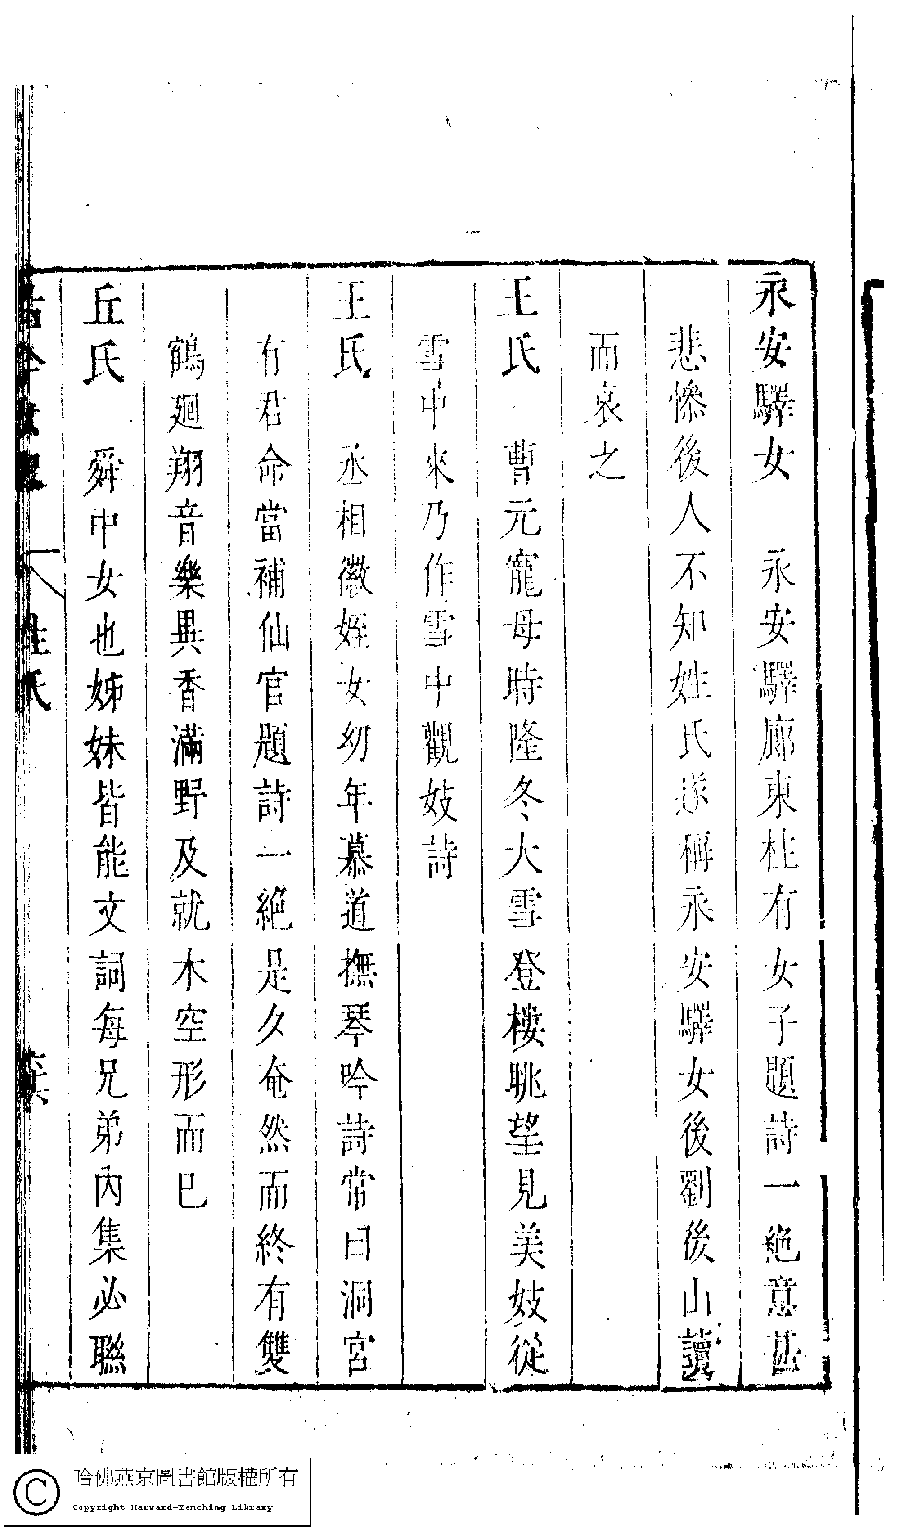 永安驛女　永安驛廊東柱有女子題詩一絶意甚
悲慘後人不知姓氏遂稱永安驛女後劉後山讀
而哀之
王氏　曹元寵母時隆冬大雪登樓眺望見美妓從
雪中來乃作雪中觀妓詩
王氏　丞相徽姪女幼年慕道撫琴吟詩常曰洞宮
有君命當補仙官題詩一絶是夕奄然而終有雙
鶴廻翔音樂異香滿野及就木空形而已
丘氏　舜中女也姊妹皆能文詞每兄弟內集必聯
姓氏
哈佛燕京圖書館版權所有
Copyright Harvard-Yenching Library